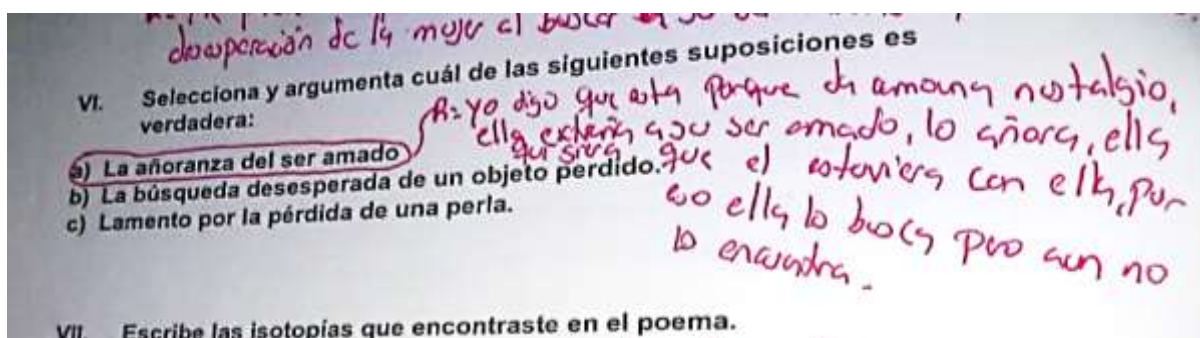 desesperación de la mujer al buscar
VI. Selecciona y argumenta cuál de las siguientes suposiciones es
verdadera:
a) La añoranza del ser amado
b) La búsqueda desesperada de un objeto perdido.
c) Lamento por la pérdida de una perla.
R= Yo digo que esta porque da nostalgia,
ella extraña a su ser amado, lo añora, ella
quisiera que el estuviera con ella, por
eso ella lo busca pero aun no
lo encuentra.
VII. Escribe las isotopías que encontraste en el poema.